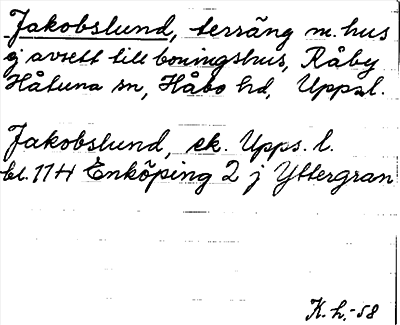 Jakobslund, terräng m. hus
ej avsett till boningshus, Råby
Håtuna sn, Håbo hd, Uppsal.
Jakobslund, ek. Upps. l.
bl. 11H Enköping 2 j Yttergran
K. h. -58